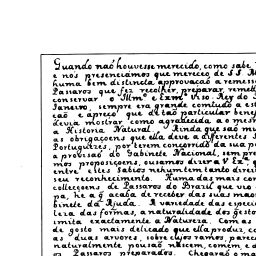 Quando naõ houvesse merecido, como sabe
e nós presenciamos que mereceo de SS. M
huma bem distincta approvaçaõ a remess
Passaros que fez recolher, preparar, remett
conservar o Illmº e Exmº V. so Rey do
Janeiro, sempre era grande comtudo a est
çaõ e apreço que de taõ particular bene
devia mostrar como agradecida a o mesm
a Historia Natural. Ainda que saõ mui
as obrigaçoens que ella deve a differentes S
Portuguezes, por terem concorrido da sua pa
a provisaõ do Gabinete Nacional, sem pre
mos proposiçoens, ousamos dizer a V. Exª q
entre estes Sabios nehum tem tanto direi
seu reconhecimento. Huma das mais com
collecçoens de Passaros do Brazil que vio
pa, he a q̃ acaba de receber das suas maos
binete da Ajuda. A variedade das especi
leza das formas, a naturalidade dos gesto
imita exactamente a Natureza. Com as
de gosto mais delicado que ella produz, co
as duas arvores, sobre cujos ramos, parec
naturalmente pousaõ nascem, comem, e d
os Passaros preparados. Chegaraõ o ma